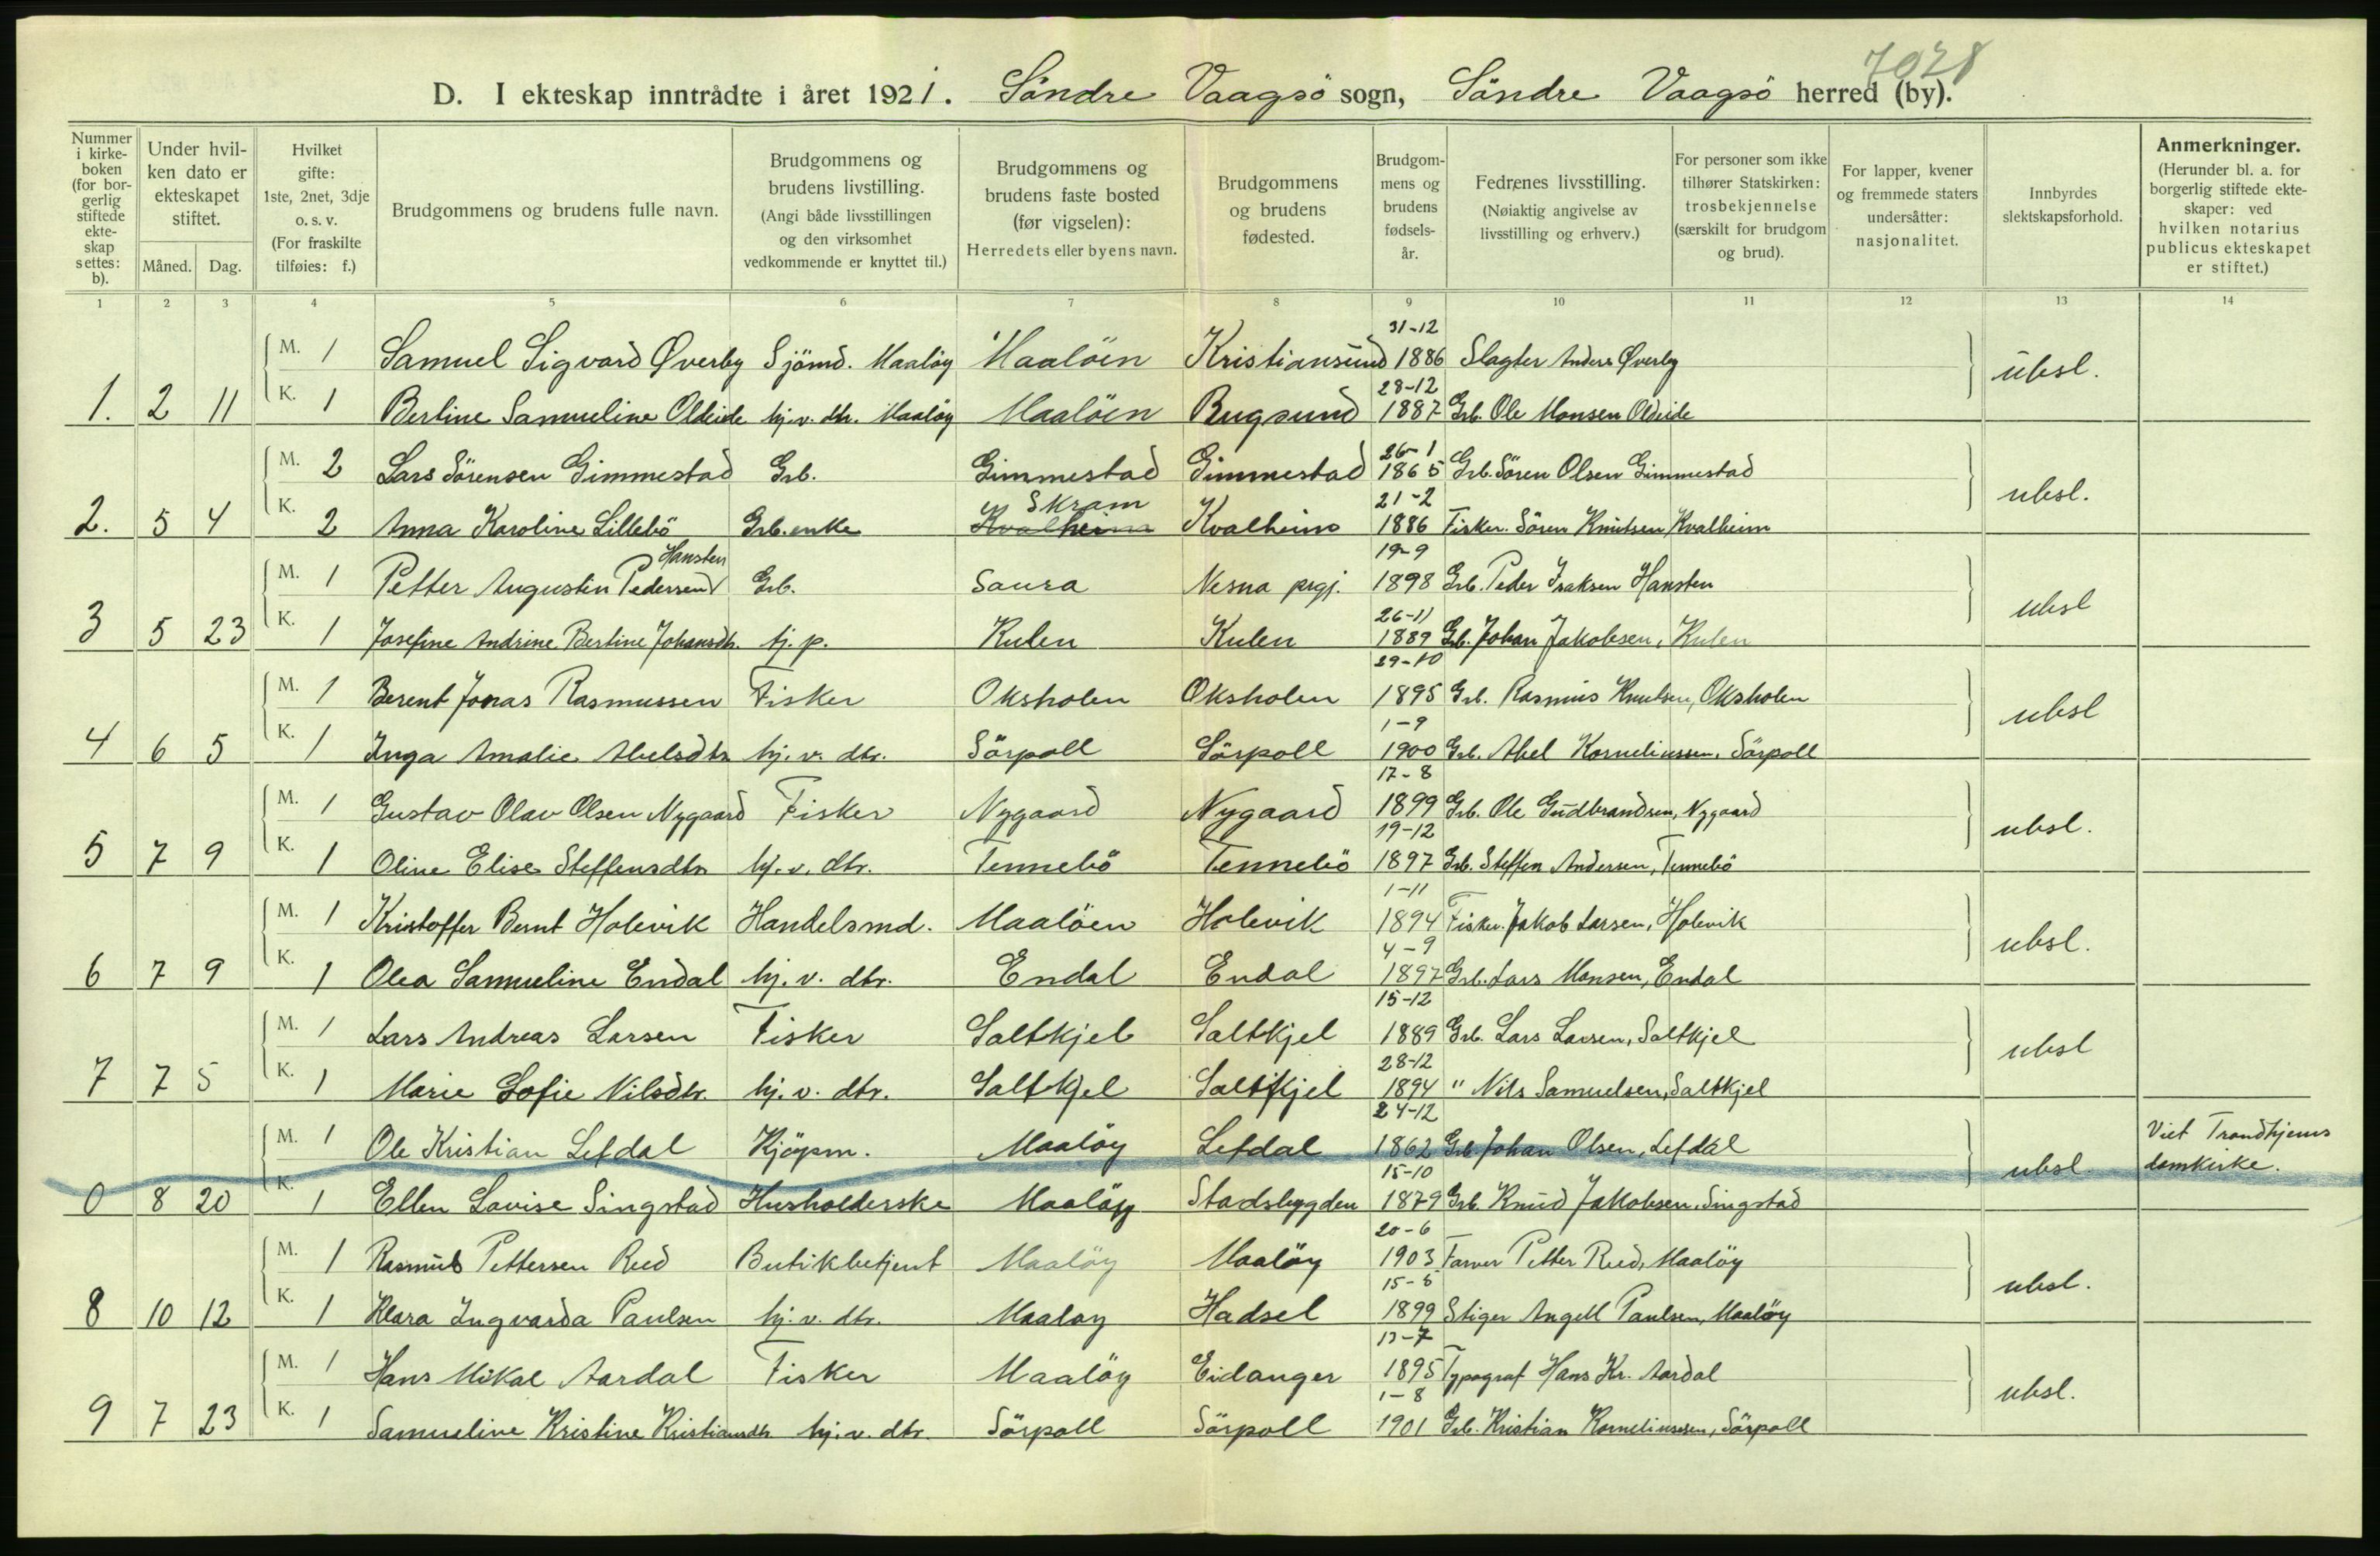 7028
D. I ekteskap inntrådte i året 1921. Söndre Vaagsö sogn, Söndre Vaagsö herred (by).
Nummer i kirke-boken (for bor-gerlig stiftede ekte-skap settes: b).
Under hvil-ken dato er ekteskapet stiftet.
Måned. Dag.
Hvilket gifte: 1ste, 2net, 3dje o. s. v. (For fraskilte tilføies: f.)
Brudgommens og brudens fulle navn.
Brudgommens og brudens livstilling. (Angi både livsstillingen og den virksomhet vedkommende er knyttet til.)
Brudgommens og brudens faste bosted (før vigselen): Herredets eller byens navn.
Brudgommens og brudens fødested.
Brudgom-mens og brudens fødsels-år.
Fedrenes livsstilling. (Nøiaktig angivelse av livsstilling og erhverv.)
For personer som ikke tilhører Statskirken: trosbekjennelse (særskilt for brudgom og brud).
For lapper, kvener og fremmede staters undersåtter: nasjonalitet.
Innbyrdes slektskapsforhold.
Anmerkninger. (Herunder bl. a. for borgerlig stiftede ekte-skaper: ved hvilken notarius publicus ekteskapet er stiftet.)
1 2 3 4 5 6 7 8 9 10 11 12 13 14
31-12
M. 1 Samuel Sigvard Øverby Sjömd. Maalöy Maalöen Kristiansund 1886 Slagter Anders Øverby ubsl.
28-12
1. 2 11 K. 1 Bertine Samueline Oldeide hj.v. dtr. Maalöy Maalöen Rugsund 1887 Grb. Ole Monsen Oldeide
26-1
M. 2 Lars Sörensen Gimmestad Grb. Gimmestad Gimmestad 1865 Grb. Sören Olsen Gimmestad ubsl.
Skram 21-2
2. 5 4 K. 2 Anna Karoline Lillebö Grb. enke Kvalheim Kvalheim 1886 Fisker. Sören Knutsen Kvalheim
Hansten 19-9
M. 1 Petter Augustin Pedersen Grb. Saura Nesna prgj. 1898 Grb. Peder Isaksen Hansten ubsl
26-11
3 5 23 K. 1 Josefine Andrine Bertine Johansdtr. tj. p. Kulen Kulen 1889 Grb. Johan Jakobsen, Kulen
29-10
M. 1 Berent Jonas Rasmussen Fisker Oksholen Oksholen 1895 Grb. Rasmus Knutsen, Oksholen ubsl
1-9
4 6 5 K. 1 Inga Amalie Abelsdtr hj. v. dtr. Sörpoll Sörpoll 1900 Grb. Abel Korneliussen, Sörpoll
17-8
M. 1 Gustav Olav Olsen Nygaard Fisker Nygaard Nygaard 1899 Grb. Ole Gudbrandsen, Nygaard ubsl.
19-12
5 7 9 K. 1 Oline Elise Steffensdtr hj. v. dtr. Tennebö Tennebö 1897 Grb. Steffen Andersen, Tennebö
1-11
M. 1 Kristoffer Bernt Holevik Handelsmd. Maalöen Holevik 1894 Fisker. Jakob Larsen, Holevik ubsl.
4-9
6 7 9 K. 1 Olea Samueline Endal hj. v. dtr. Endal Endal 1897 Grb. Lars Monsen, Endal
15-12
M. 1 Lars Andreas Larsen Fisker Saltkjel Saltkjel 1889 Grb. Lars Larsen, Saltkjel ubsl
28-12
7 7 5 K. 1 Marie Sofie Nilsdtr. hj. v. dtr. Saltkjel Saltkjel 1894 " Nils Samuelsen, Saltkjel
24-12
M. 1 Ole Kristian Lefdal Kjöpm. Maalöy Lefdal 1862 Grb Johan Olsen, Lefdal ubsl. Viet Trondhjems domkirke.
15-10
0 8 20 K. 1 Ellen Lovise Singstad Husholderske Maalöy Stadsbygden 1879 Grb. Knud Jakobsen, Singstad
20-6
M. 1 Rasmus Pettersen Reed Butikbetjent Maalöy Maalöy 1903 Farver Petter Reed, Maalöy ubsl.
15-6
8 10 12 K. 1 Klara Ingvarda Paulsen hj. v. dtr. Maalöy Hadsel 1899 Stiger Angell Paulsen, Maalöy
13-7
M. 1 Hans Mikal Aardal Fisker Maalöy Eidanger 1895 Typograf Hans Kr. Aardal ubsl.
1-8
9 7 23 K. 1 Samueline Kristine Kristiansdtr hj. v. dtr. Sörpoll Sörpoll 1901 Grb. Kristian Korneliussen, Sörpoll